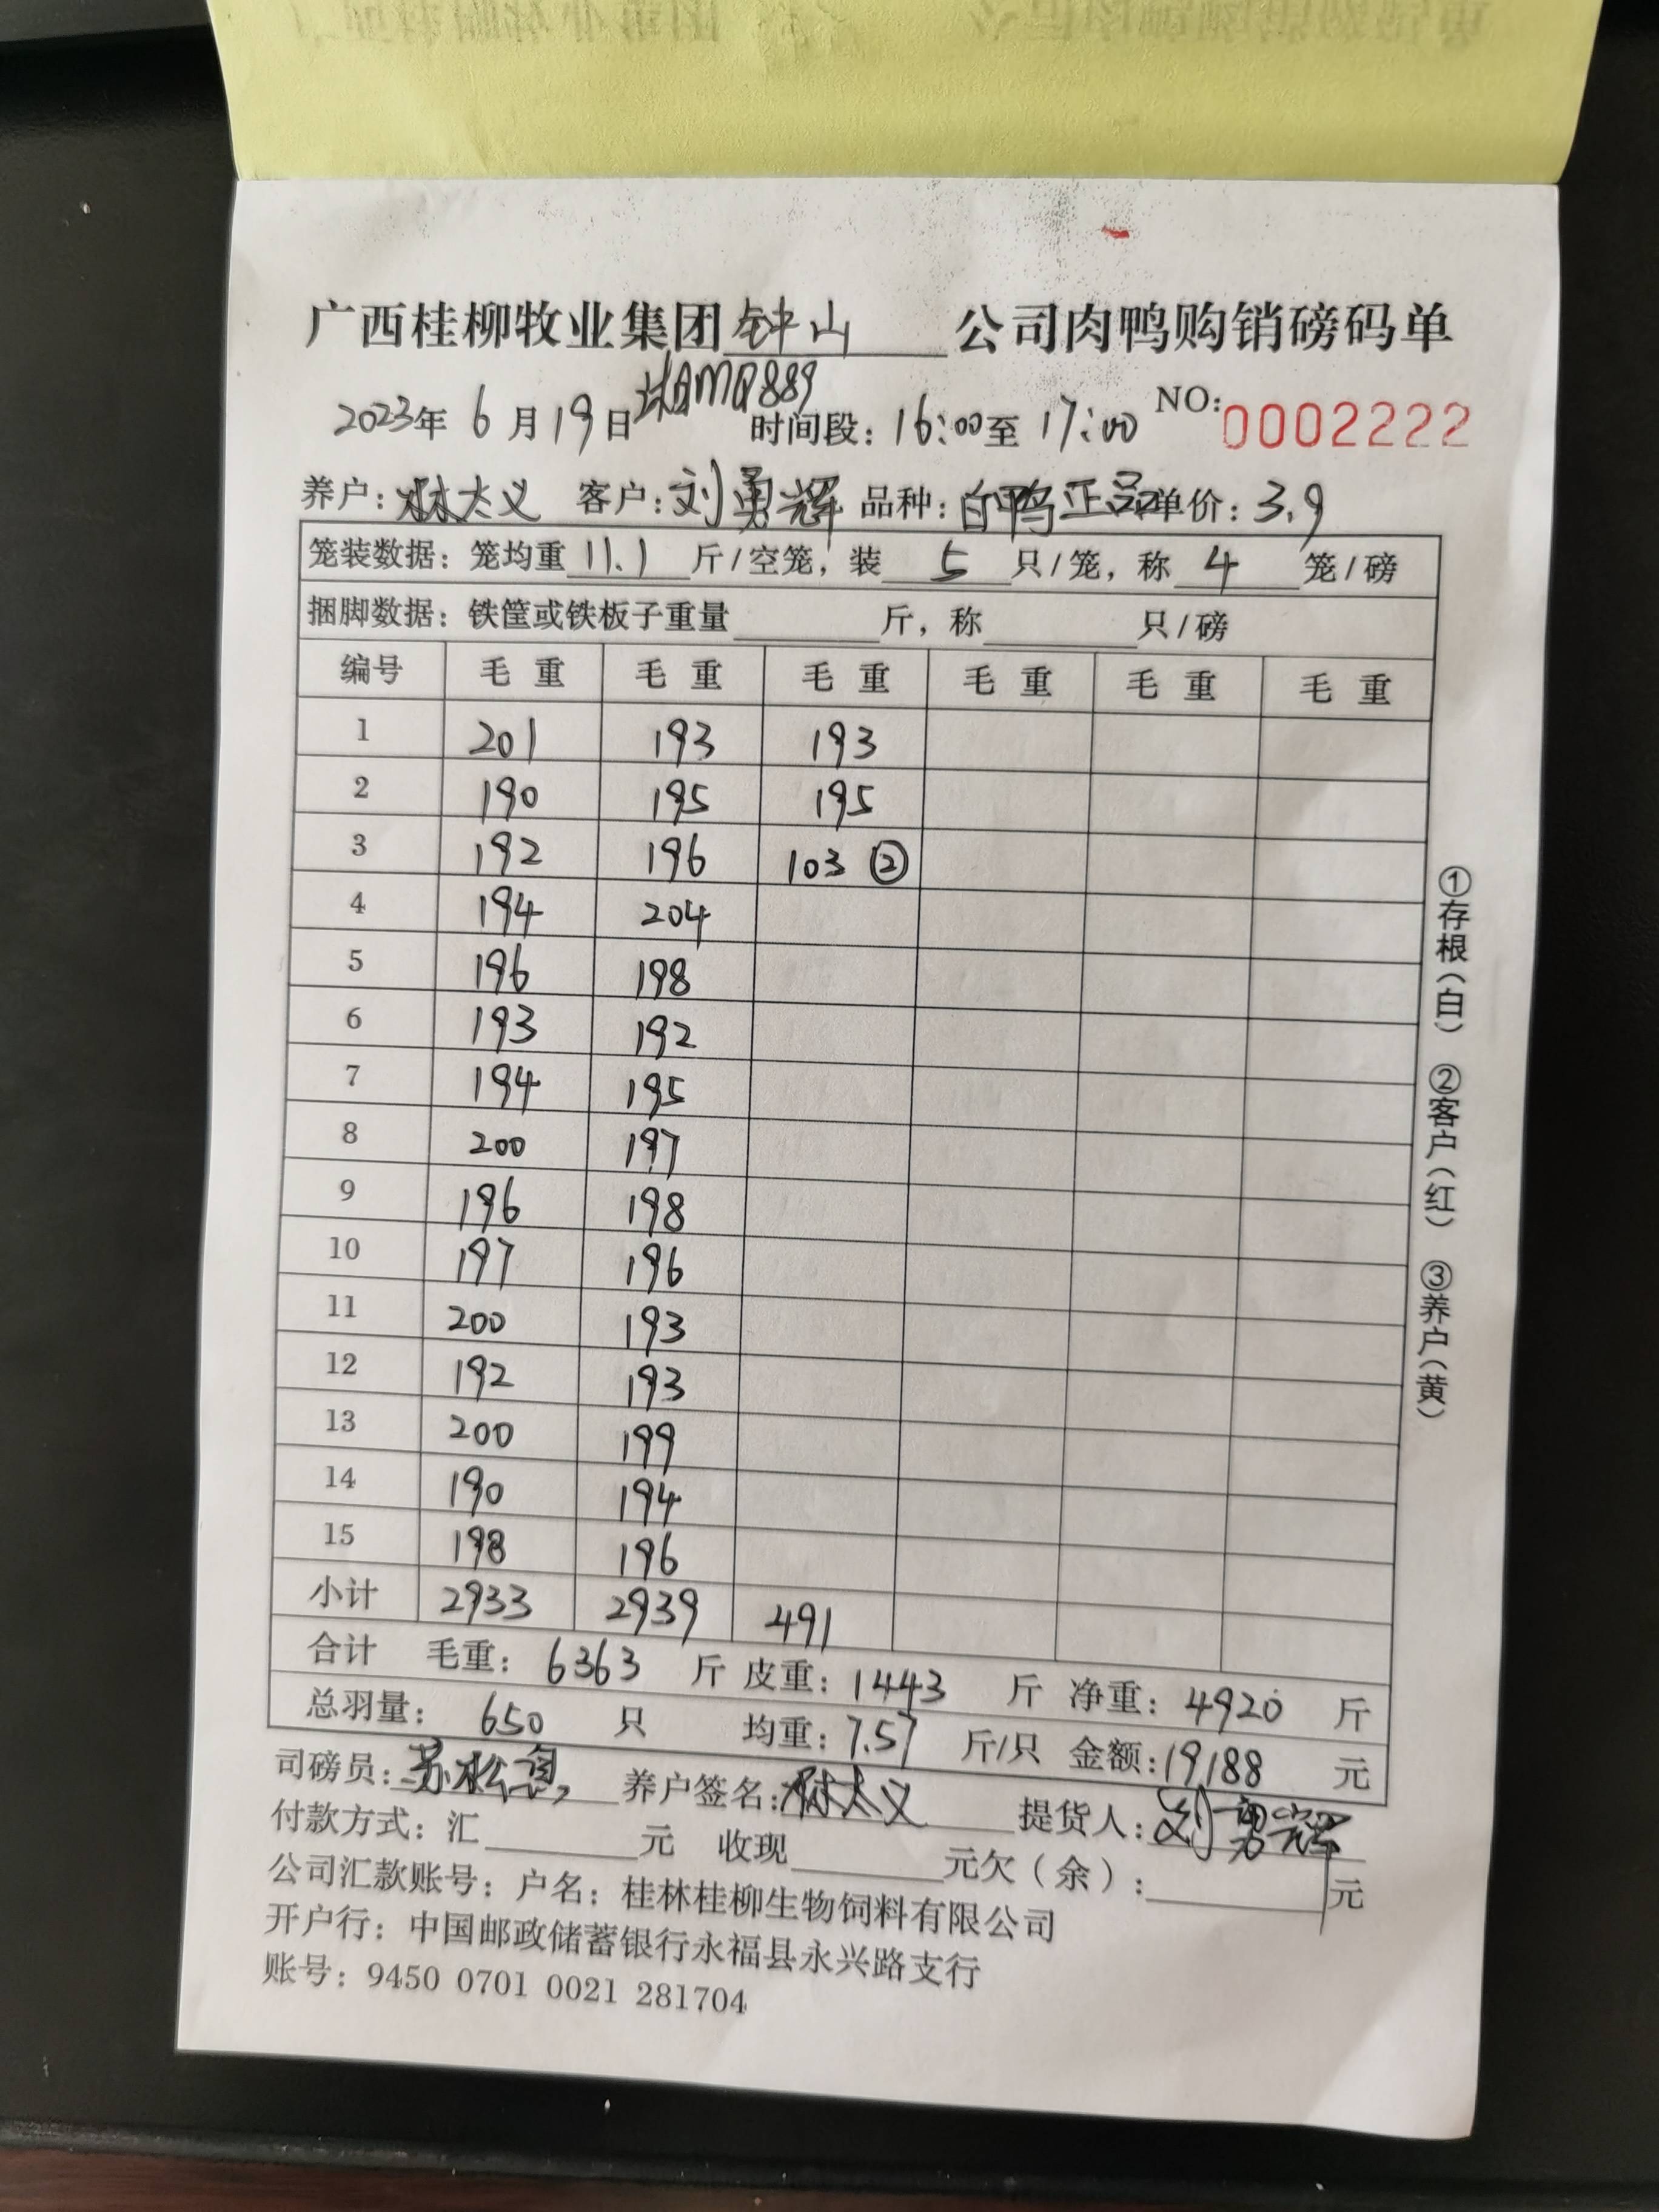 广西桂柳牧业集团钟山公司肉鸭购销磅码单
2023年6月19日 AMQ889 时间段：16:00至17:00 NO:0002222
养户：林太义 客户：刘勇辉 品种：白鸭正品 单价：3.9
笼装数据：笼均重11.1斤/空笼，装5只/笼，称4笼/磅
捆脚数据：铁筐或铁板子重量 斤，称 只/磅
编号 毛重 毛重 毛重 毛重 毛重 毛重
1 201 193 193
2 190 195 195
3 192 196 103 ②
4 194 204
5 196 198
6 193 192
7 194 195
8 200 197
9 196 198
10 197 196
11 200 193
12 192 193
13 200 199
14 190 194
15 198 196
小计 2933 2939 491
合计 毛重：6363斤 皮重：1443斤 净重：4920斤
总羽量：650只 均重：7.57斤/只 金额：19188元
司磅员：苏松 养户签名：林太义 提货人：刘勇辉
付款方式：汇 元 收现 元欠（余）： 元
公司汇款账号：户名：桂林桂柳生物饲料有限公司
开户行：中国邮政储蓄银行永福县永兴路支行
账号：9450 0701 0021 281704
①存根（白） ②客户（红） ③养户（黄）